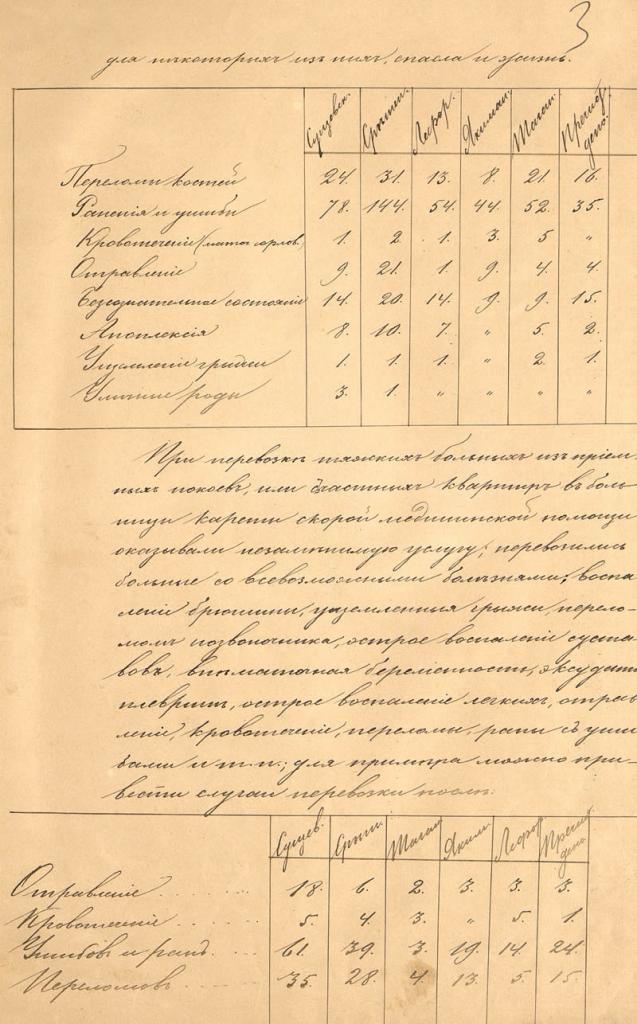 3
для нѣкоторыхъ изъ нихъ, спасла и жизнь.
Сущевск. Срѣтен. Лефор. Якиман. Таган. Прѣсн. депо.
Переломы костей 24. 31. 13. 8. 21. 16.
Раненія и ушибы 78. 144. 54. 44. 52. 35.
Кровотеченіе 1. 2. 1. 3. 5 "
Отравленіе 9. 21. 1. 9. 4. 4.
Безсознательное состояніе 14. 20. 14. 9. 9. 15.
Апоплексія 8. 10. 7. " 5. 2.
Ущемленіе грыжи 1. 1. 1. " 2. 1.
Уличные роды 3. 1. " " " "
При перевозкѣ тяжкихъ больныхъ изъ пріем-
ныхъ покоевъ, или частныхъ квартиръ въ боль-
ницы кареты скорой медицинской помощи
оказывали незамѣнимую услугу; перевозились
больные со всевозможными болѣзнями; воспа-
леніе брюшины, ущемленныя грыжи, перело-
момъ позвоночника, острое воспаленіе суста-
вовъ, внѣматочная беременность, эксудат.
плевритъ, острое воспаленіе легкихъ, отрав
леніе, кровотеченіе, переломы, раны съ уши
бами и т.п.; для примѣра можно при-
вести случаи перевозки послѣ:
Сущев. Срѣтен. Таган. Яким. Лефор. Прѣсн. депо
Отравленіе . . . . . . 18. 6. 2. 3. 3. 3.
Кровотеченіе . . . . . 5. 4. 3. " 5. 1.
Ушибовъ и ранъ. . . . 61. 39. 3. 19. 14. 24.
Переломовъ . . . . . 35. 28. 4. 13. 5. 15.